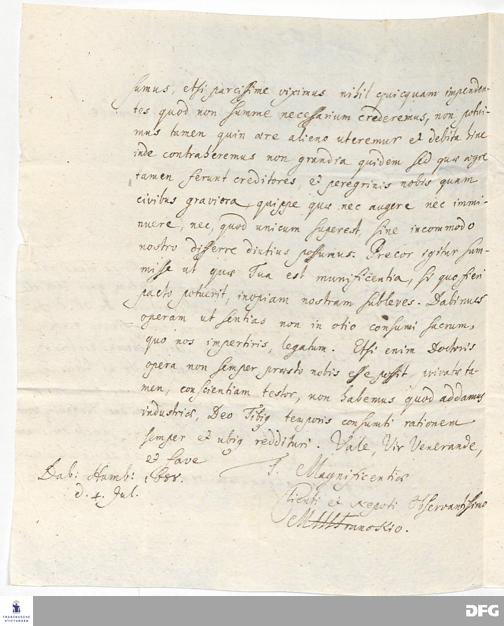 sumus, etsi parcissime viximus nihil quicquam impenden-
tes quod non summe necessarium crederemus, non potui-
mus tamen quin aere alieno uteremur et debita hinc
inde contraheremus non grandia quidem sed quae aegre
tamen ferunt creditores, et peregrinis nobis quam
civibus graviora, quippe quae nec augere nec immi-
nuere, nec, quod unicum superest, sine incommodo
nostro differre diutius possumus. Precor igitur sum-
misse ut quae Tua est munificentia, si quo fieri
pacto poterit, inopiam nostram subleves. Dabimus
operam ut sentias non in otio consumi sacrum,
quo nos impertiris, legatum. Etsi enim Doctoris
opera non semper praesto nobis esse possit, privata ta-
men, conscientiam testor, non habemus quod addamus
industriae, Deo Tibiq temporis consumti rationem
semper et ubiq reddituri. Vale, Vir Venerande,
et fave
T. Magnificentiae
Dab: Hamb: 1688.
d. 4. Jul.
Clienti et Nepoti Observantissimo